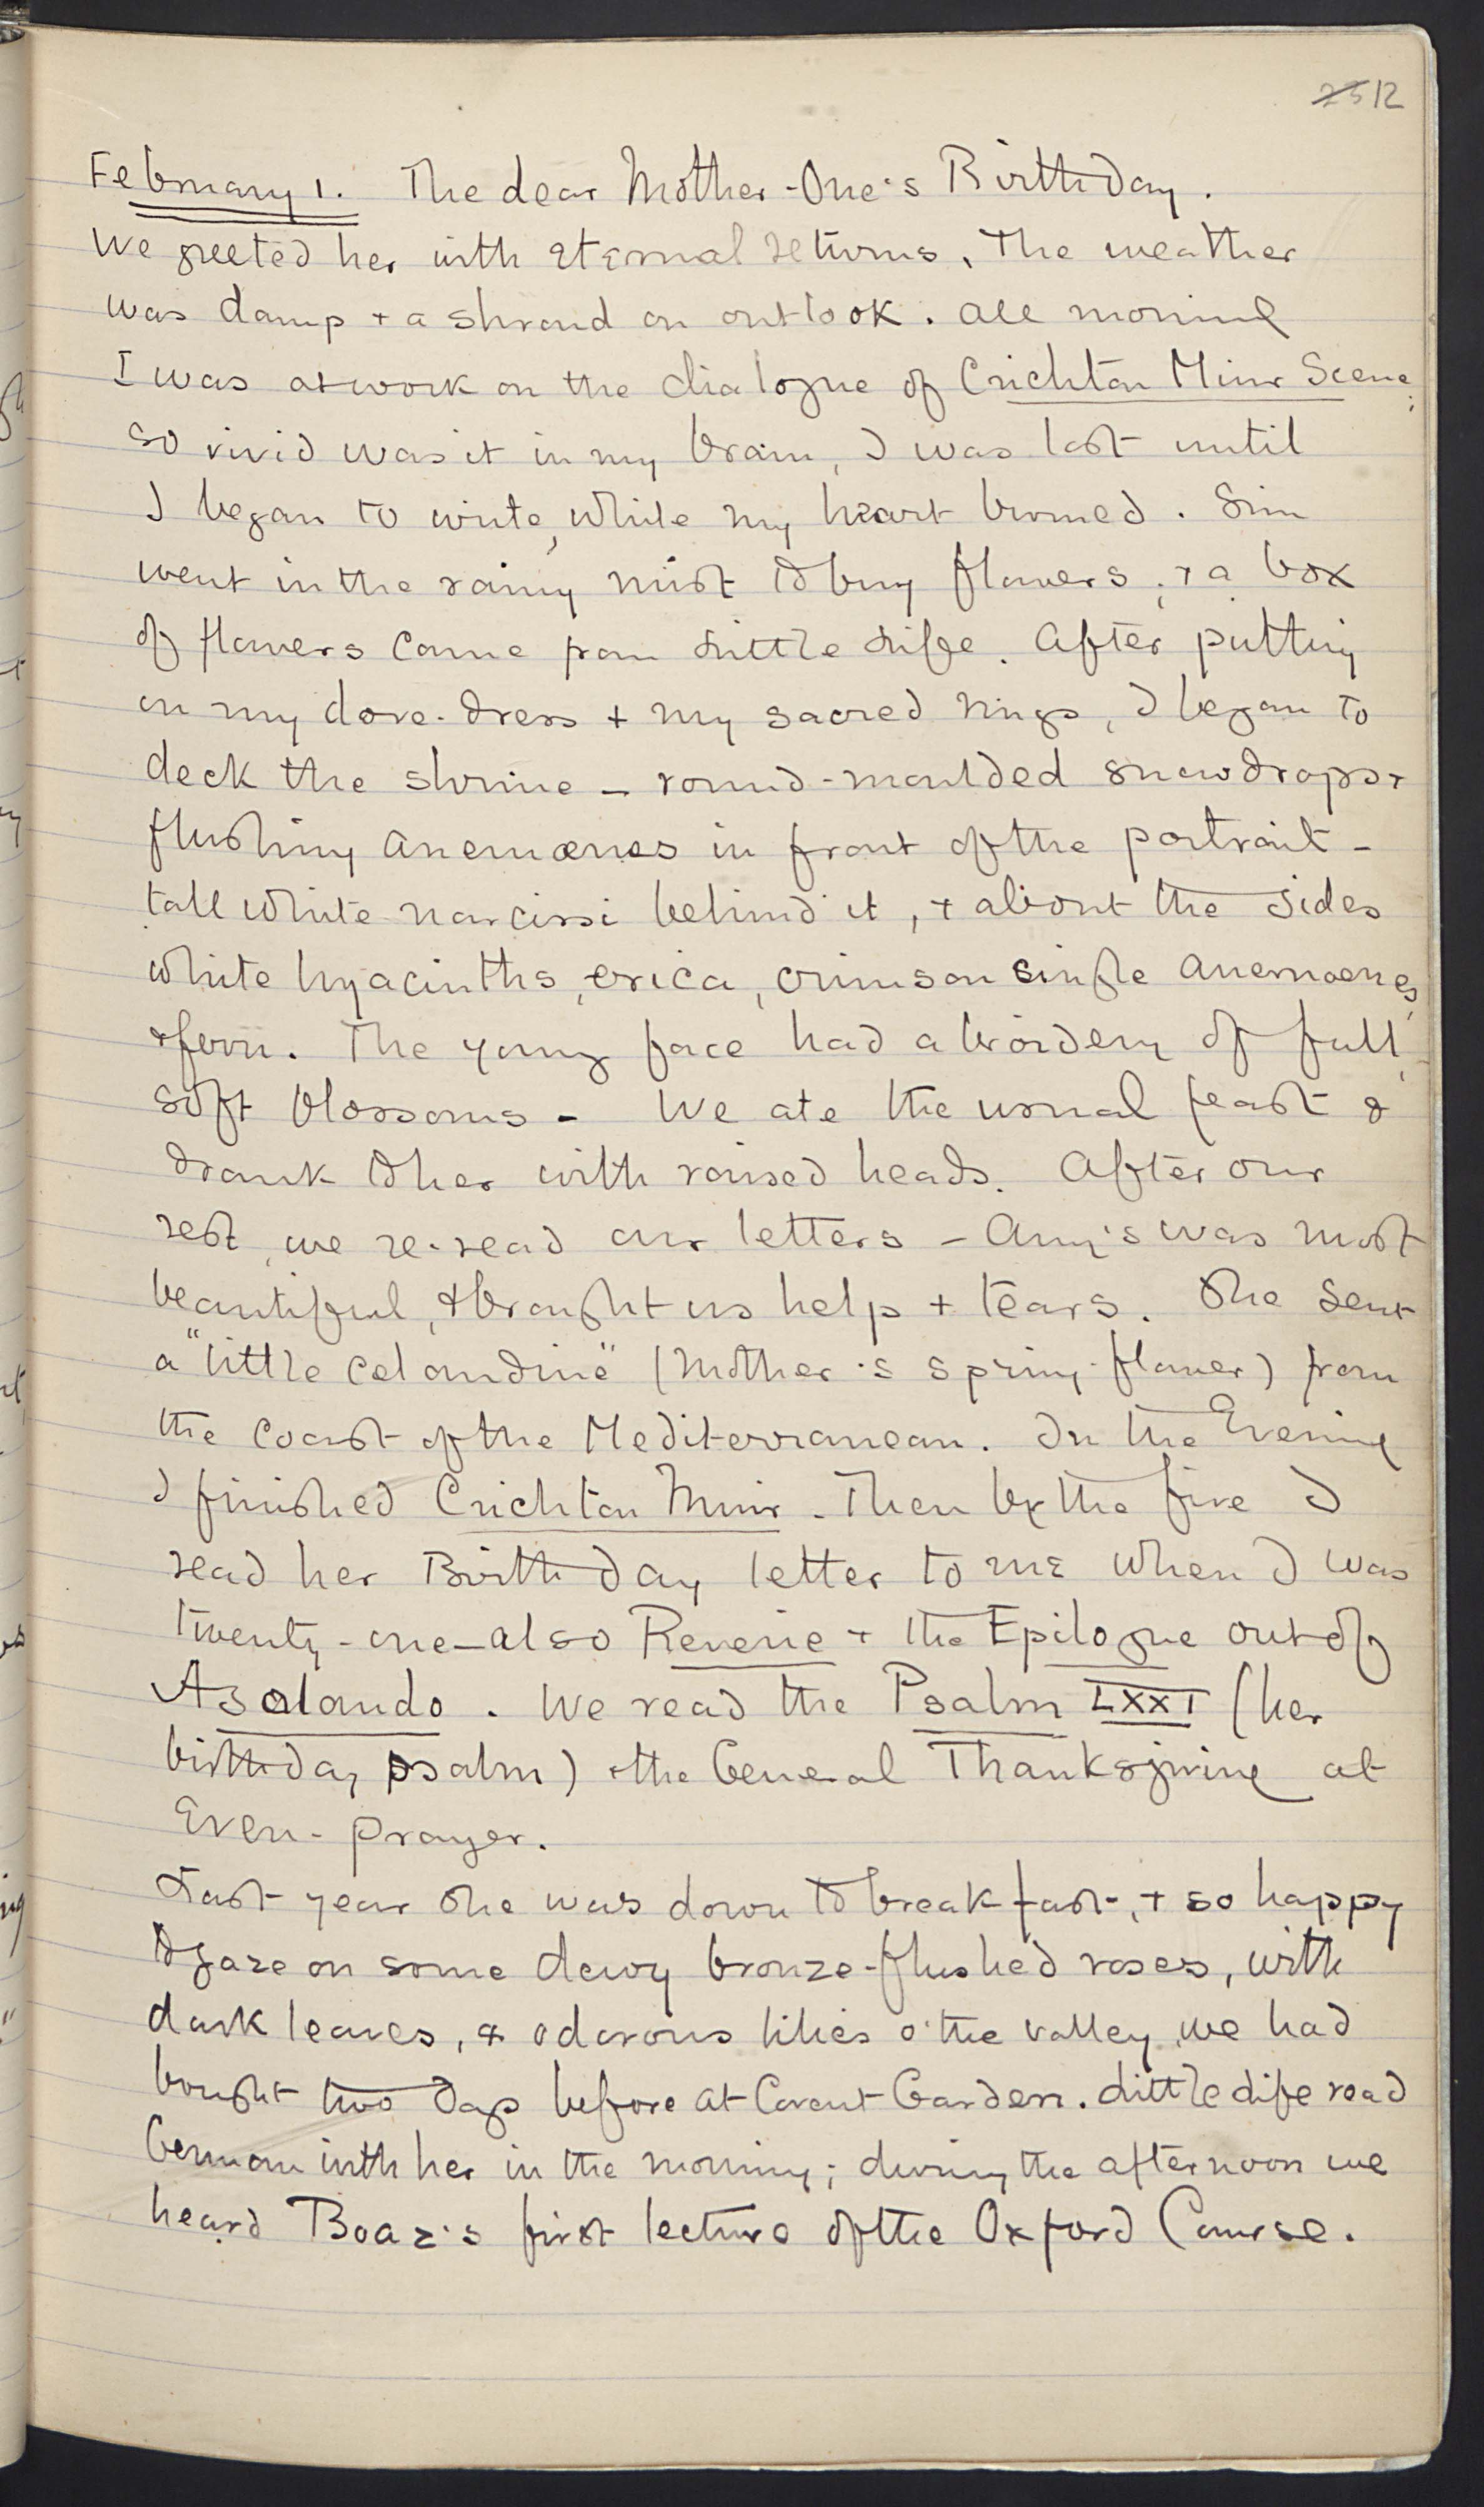 25 12
February 1. The dear Mother-One's Birthday.
We greeted her with eternal returns. The weather
was damp + a shroud on outlook. All morning
I was at work on the dialogue of Crichton Muir Scene;
so vivid was it in my brain, I was lost until
I began to write, while my heart burned. Sim
went in the rainy mist to buy flowers, + a box
of flowers came from Little Life. After putting
on my dove-dress + my sacred rings, I began to
deck the shrine — round-moulded snowdrops +
flushing anemones in front of the portrait —
tall white narcissi behind it, + about the sides
white hyacinths, erica, crimson single anemones,
& fern. The young face had a bordery of full,
soft blossoms — We ate the usual feast &
drank to her with raised heads. After our
rest, we re-read our letters — Amy's was most
beautiful, & brought us help + tears. She sent
a "little celandine" (Mother's spring-flower) from
the coast of the Mediterranean. In the Evening
I finished Crichton Muir. Then by the fire I
read her Birthday letter to me when I was
twenty-one — also Reverie + the Epilogue out of
Asolando. We read the Psalm LXXI (her
birthday psalm) & the General Thanksgiving at
Even-prayer.
Last year she was down to breakfast, + so happy
to gaze on some dewy bronze-flushed roses, with
dark leaves, & odorous lilies o' the valley, we had
bought two days before at Covent Garden. Little Life read
German with her in the morning; during the afternoon we
heard Boaz's first lecture of the Oxford Course.